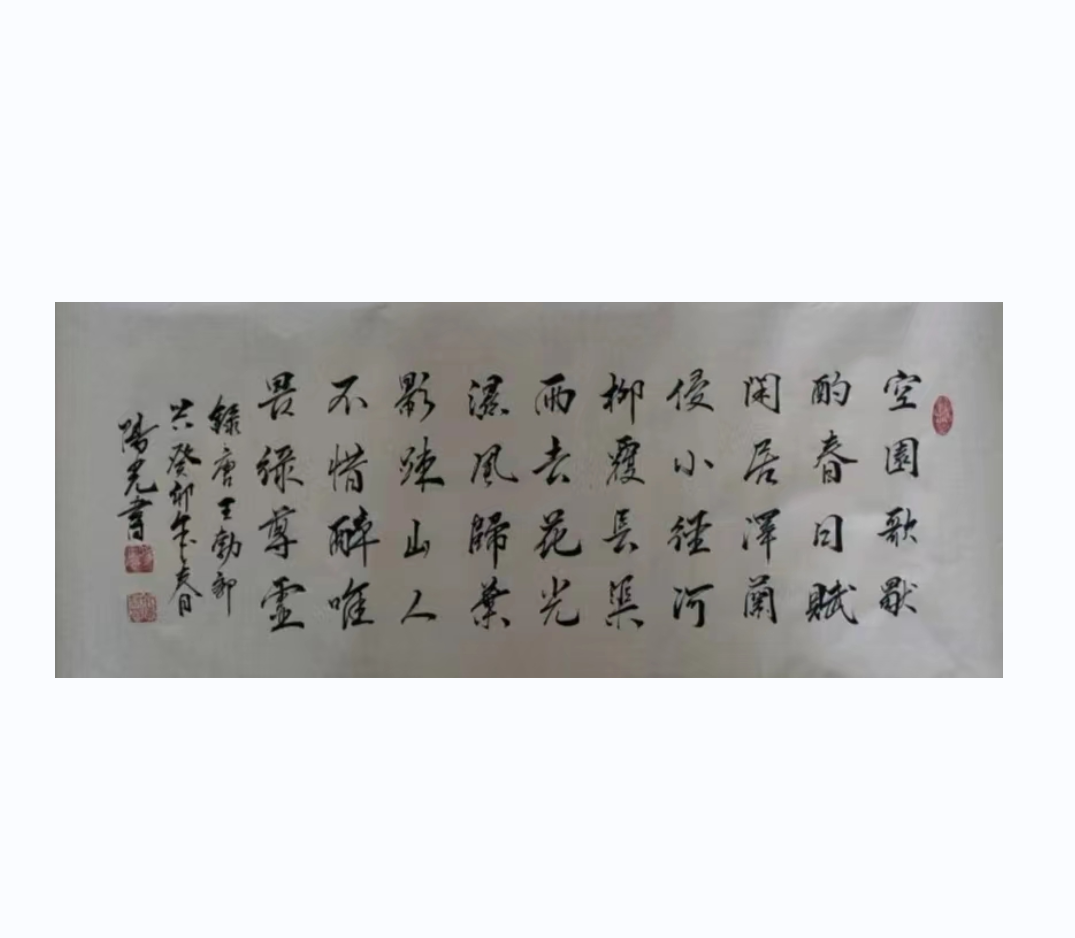 空園歌獨
酌春日賦
閑居澤蘭
侵小徑河
柳覆長渠
雨去花光
濕風歸葉
影疎山人
不惜醉唯
畏緑尊虛
録唐王勃郊
興癸卯年春日
陽光書